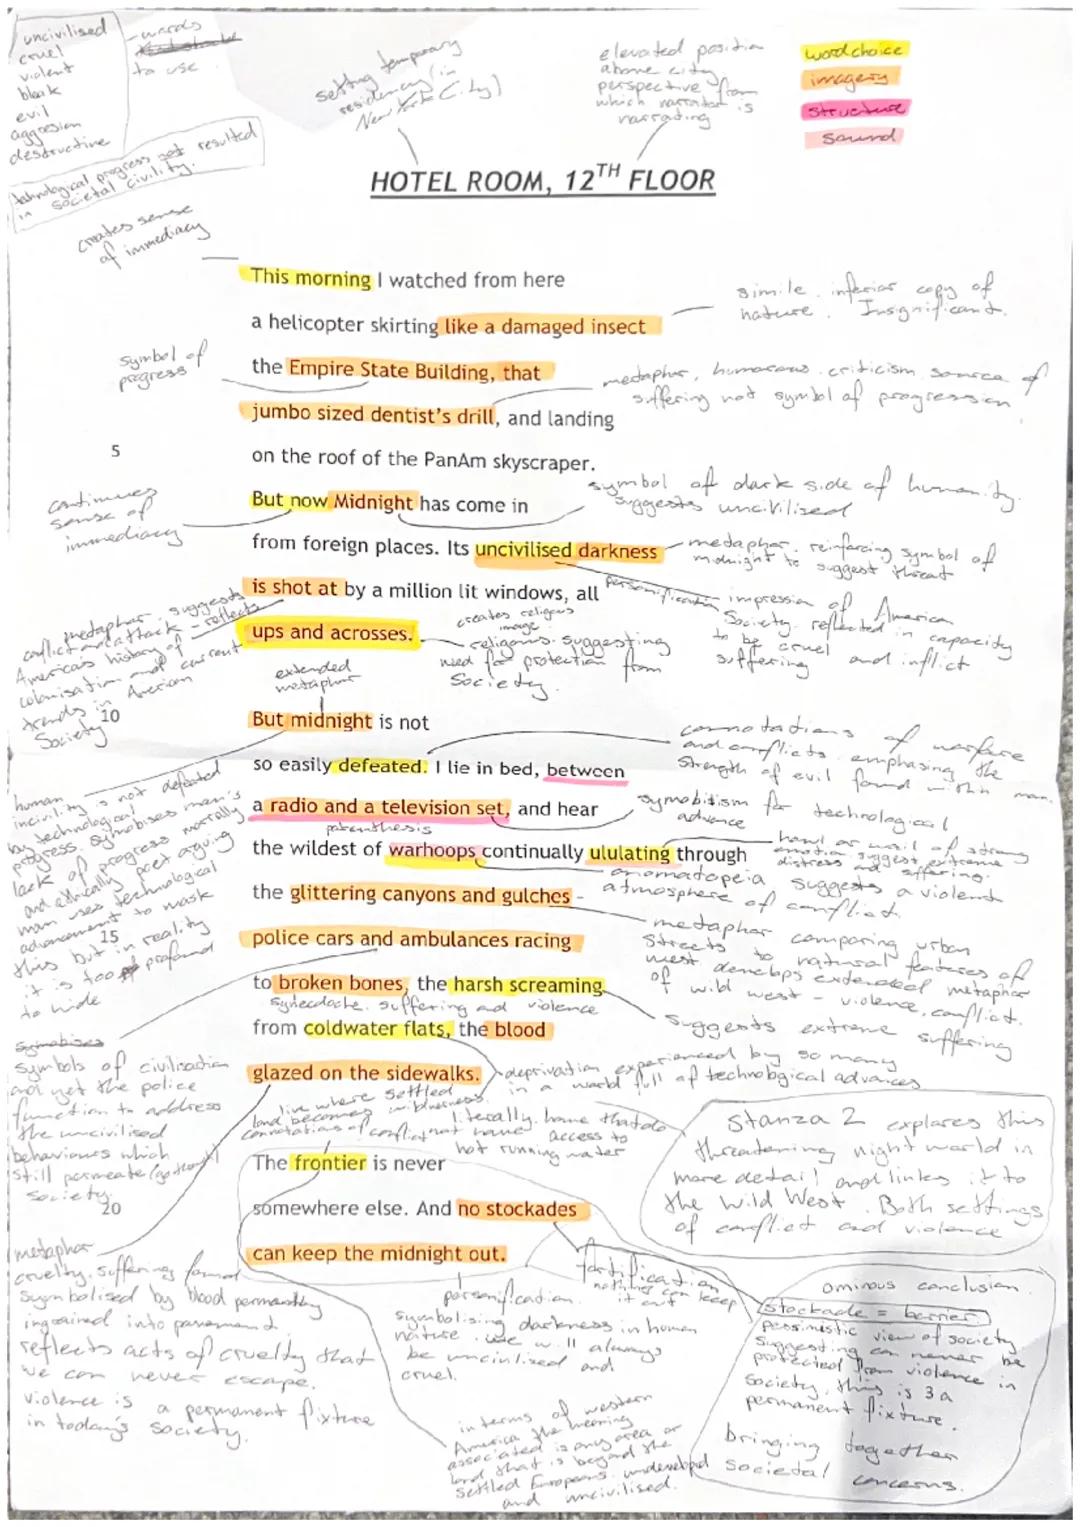 uncivilised
cruel
violent
bleak
evil
aggression
destructive
- words
to use
technological progress not resulted
in societal civility.
setting temporary
residency (in
New York City)
elevated position
above city
perspective from
which narrator is
narrating
wordchoice
imagery
structure
sound
HOTEL ROOM, 12TH FLOOR
creates sense
of immediacy
This morning I watched from here
simile. inferior copy of
nature. Insignificant.
a helicopter skirting like a damaged insect
symbol of
progress
the Empire State Building, that
metaphor, humorous criticism source of
suffering not symbol of progression
jumbo sized dentist's drill, and landing
5
on the roof of the PanAm skyscraper.
symbol of dark side of humanity.
suggests uncivilised
continues
sense of
immediacy
But now Midnight has come in
from foreign places. Its uncivilised darkness
metaphor. reinforcing symbol of
midnight to suggest threat
is shot at by a million lit windows, all
personification
impression of American
Society. reflected in capacity
to be cruel and inflict
suffering
metaphor suggests
conflict and attack - reflects
America's history of
colonisation and current
trends in American
Society
ups and acrosses.
creates religious
image
religious. suggesting
need for protection from
Society.
extended
metaphor
10
But midnight is not
connotations of warfare
and conflicts. emphasing the
strength of evil found within man.
so easily defeated. I lie in bed, between
human
incivility is not defeated
by technological
progress. symobises man's
lack of progress morally
and ethically poet arguing
man uses technological
advancement to mask
this but in reality
it is too profound
to hide
a radio and a television set, and hear
symobitism for technological
advance
parenthesis
the wildest of warhoops continually ululating through
howl or wail of strong
emotion suggest extreme
distress and suffering.
onomatopeia suggests a violent
atmosphere of conflict
the glittering canyons and gulches -
metaphor comparing urban
streets to natural features of
west develops extended metaphor
of wild west - violence, conflict.
15
police cars and ambulances racing
to broken bones, the harsh screaming
synecdoche. suffering and violence
suggests extreme suffering
from coldwater flats, the blood
symbols of civilisation
and yet the police
function to address
the uncivilised
behaviours which
still permeate (go through)
Society.
glazed on the sidewalks.
deprivation experienced by so many
in a world full of technological advances
line where settled
land becomes wilderness.
connotations of conflict not home
literally. home that do
not access to
hot running water
Stanza 2 explores this
threatening night world in
more detail and links it to
the Wild West. Both settings
of conflict and violence
The frontier is never
20
somewhere else. And no stockades
can keep the midnight out.
metaphor
cruelty. suffering found
symbolised by blood permanently
ingrained into pavement
reflects acts of cruelty that
we can never escape.
violence is a permanent fixture
in today's society.
personification.
symbolising darkness in human
nature. we will always
be uncivilised and
cruel.
fortification
nothing can keep
it out
ominous conclusion
stockade = barrier
pessimistic view of society
suggesting can never be
protected from violence in
society, this is a
permanent fixture.
bringing together
societal concerns.
in terms of western
America the meaning
associated is any area or
land that is beyond the
settled Europeans. undeveloped
and uncivilised.